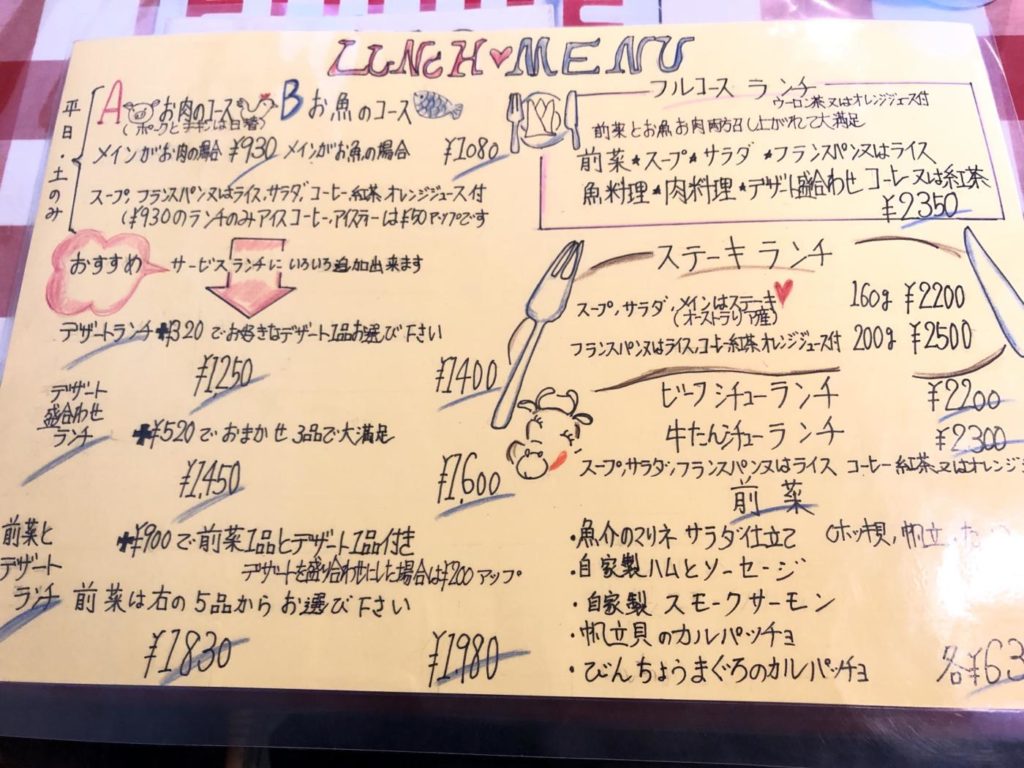 LUNCH♥MENU
平日・土のみ
A お肉のコース
(ポークとチキンは日替)
B お魚のコース
メインがお肉の場合 ¥930 メインがお魚の場合 ¥1080
スープ、フランスパン又はライス、サラダ、コーヒー、紅茶、オレンジジュース付
(¥930のランチのみアイスコーヒー、アイスティーは¥50アップです
おすすめ サービスランチにいろいろ追加出来ます
デザートランチ +¥320 でお好きなデザート1品お選び下さい
¥1250 ¥1400
デザート
盛合わせ
ランチ
+¥520で おまかせ 3品で大満足
¥1,450 ¥1,600
前菜と
デザート
ランチ
+¥900で前菜1品とデザート1品付き
デザートを盛り合わせにした場合は¥200アップ
前菜は右の5品からお選び下さい
¥1830 ¥1980
フルコース ランチ
ウーロン茶又はオレンジジュース付
前菜とお魚お肉両方召し上がれて大満足
前菜★スープ★サラダ★フランスパン又はライス
魚料理★肉料理★デザート盛合わせ コーヒー又は紅茶
¥2350
ステーキ ランチ
スープ、サラダ、メインはステーキ
(オーストラリア産)
160g ¥2200
フランスパン又はライス、コーヒー紅茶オレンジジュース付 200g ¥2500
ビーフシチューランチ ¥2200
牛たんシチューランチ ¥2300
スープ、サラダ、フランスパン又はライス コーヒー紅茶又はオレンジ
前菜
・魚介のマリネ サラダ仕立て (ホッキ貝、帆立、
・自家製ハムとソーセージ
・自家製 スモークサーモン
・帆立貝のカルパッチョ
・びんちょうまぐろのカルパッチョ 各¥63